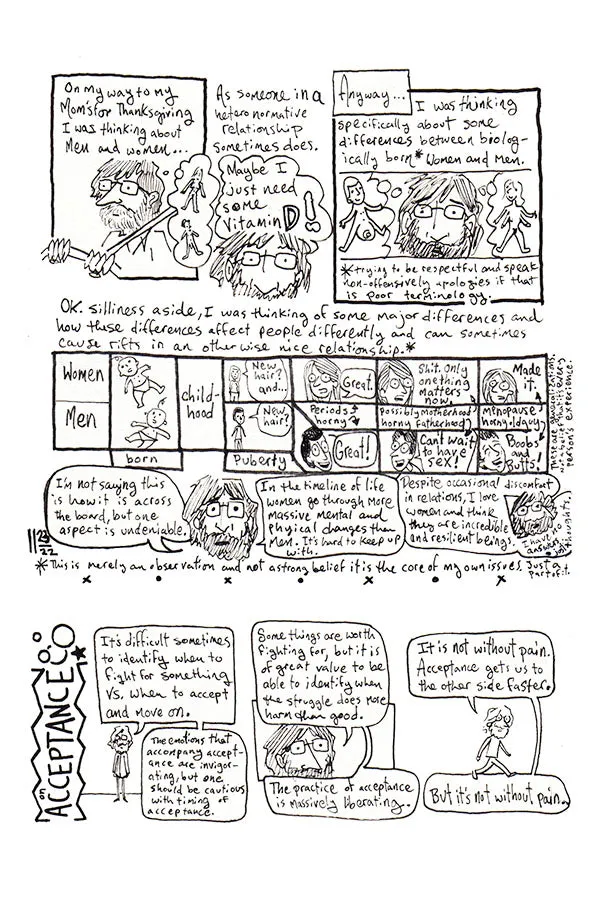 On my way to my
Mom's for Thanksgiving
I was thinking about
Men and women...
As someone in a
heteronormative
relationship
sometimes does.
Maybe I
just need
some
Vitamin D!
Anyway...
I was thinking
specifically about some
differences between biolog-
ically born* Women and Men.
*trying to be respectful and speak
non-offensively apologies if that
is poor terminology.
OK. silliness aside, I was thinking of some major differences and
how these differences affect people differently and can sometimes
cause rifts in an otherwise nice relationship.*
Women
Men
born
child-
hood
New
hair?
and...
New
hair?
Puberty
Great.
Periods
horny
Great!
Shit. Only
one thing
matters
now.
Possibly Motherhood
horny (fatherhood)
Can't wait
to have
sex!
Made
it.
menopause
horny
Boobs
and
Butts!
person's experience.
I'm not saying this
is how it is across
the board, but one
aspect is undeniable.
In the timeline of life
women go through more
Massive mental and
physical changes than
Men. It's hard to keep up
with.
Despite occasional discomfort
in relations, I love
women and think
they are incredible
and resilient beings.
I have no
answers, just
thoughts.
11
23
22
*This is merely an observation and not a strong belief it is the core of my own issues. Just a
part of it.
on
ACCEPTANCE
It's difficult sometimes
to identify when to
fight for something
vs. when to accept
and move on.
The emotions that
accompany accept-
ance are invigor-
ating, but one
should be cautious
with timing of
acceptance.
Some things are worth
fighting for, but it is
of great value to be
able to identify when
the struggle does more
harm than good.
The practice of acceptance
is massively liberating..
It is not without pain.
Acceptance gets us to
the other side faster.
But it's not without pain.